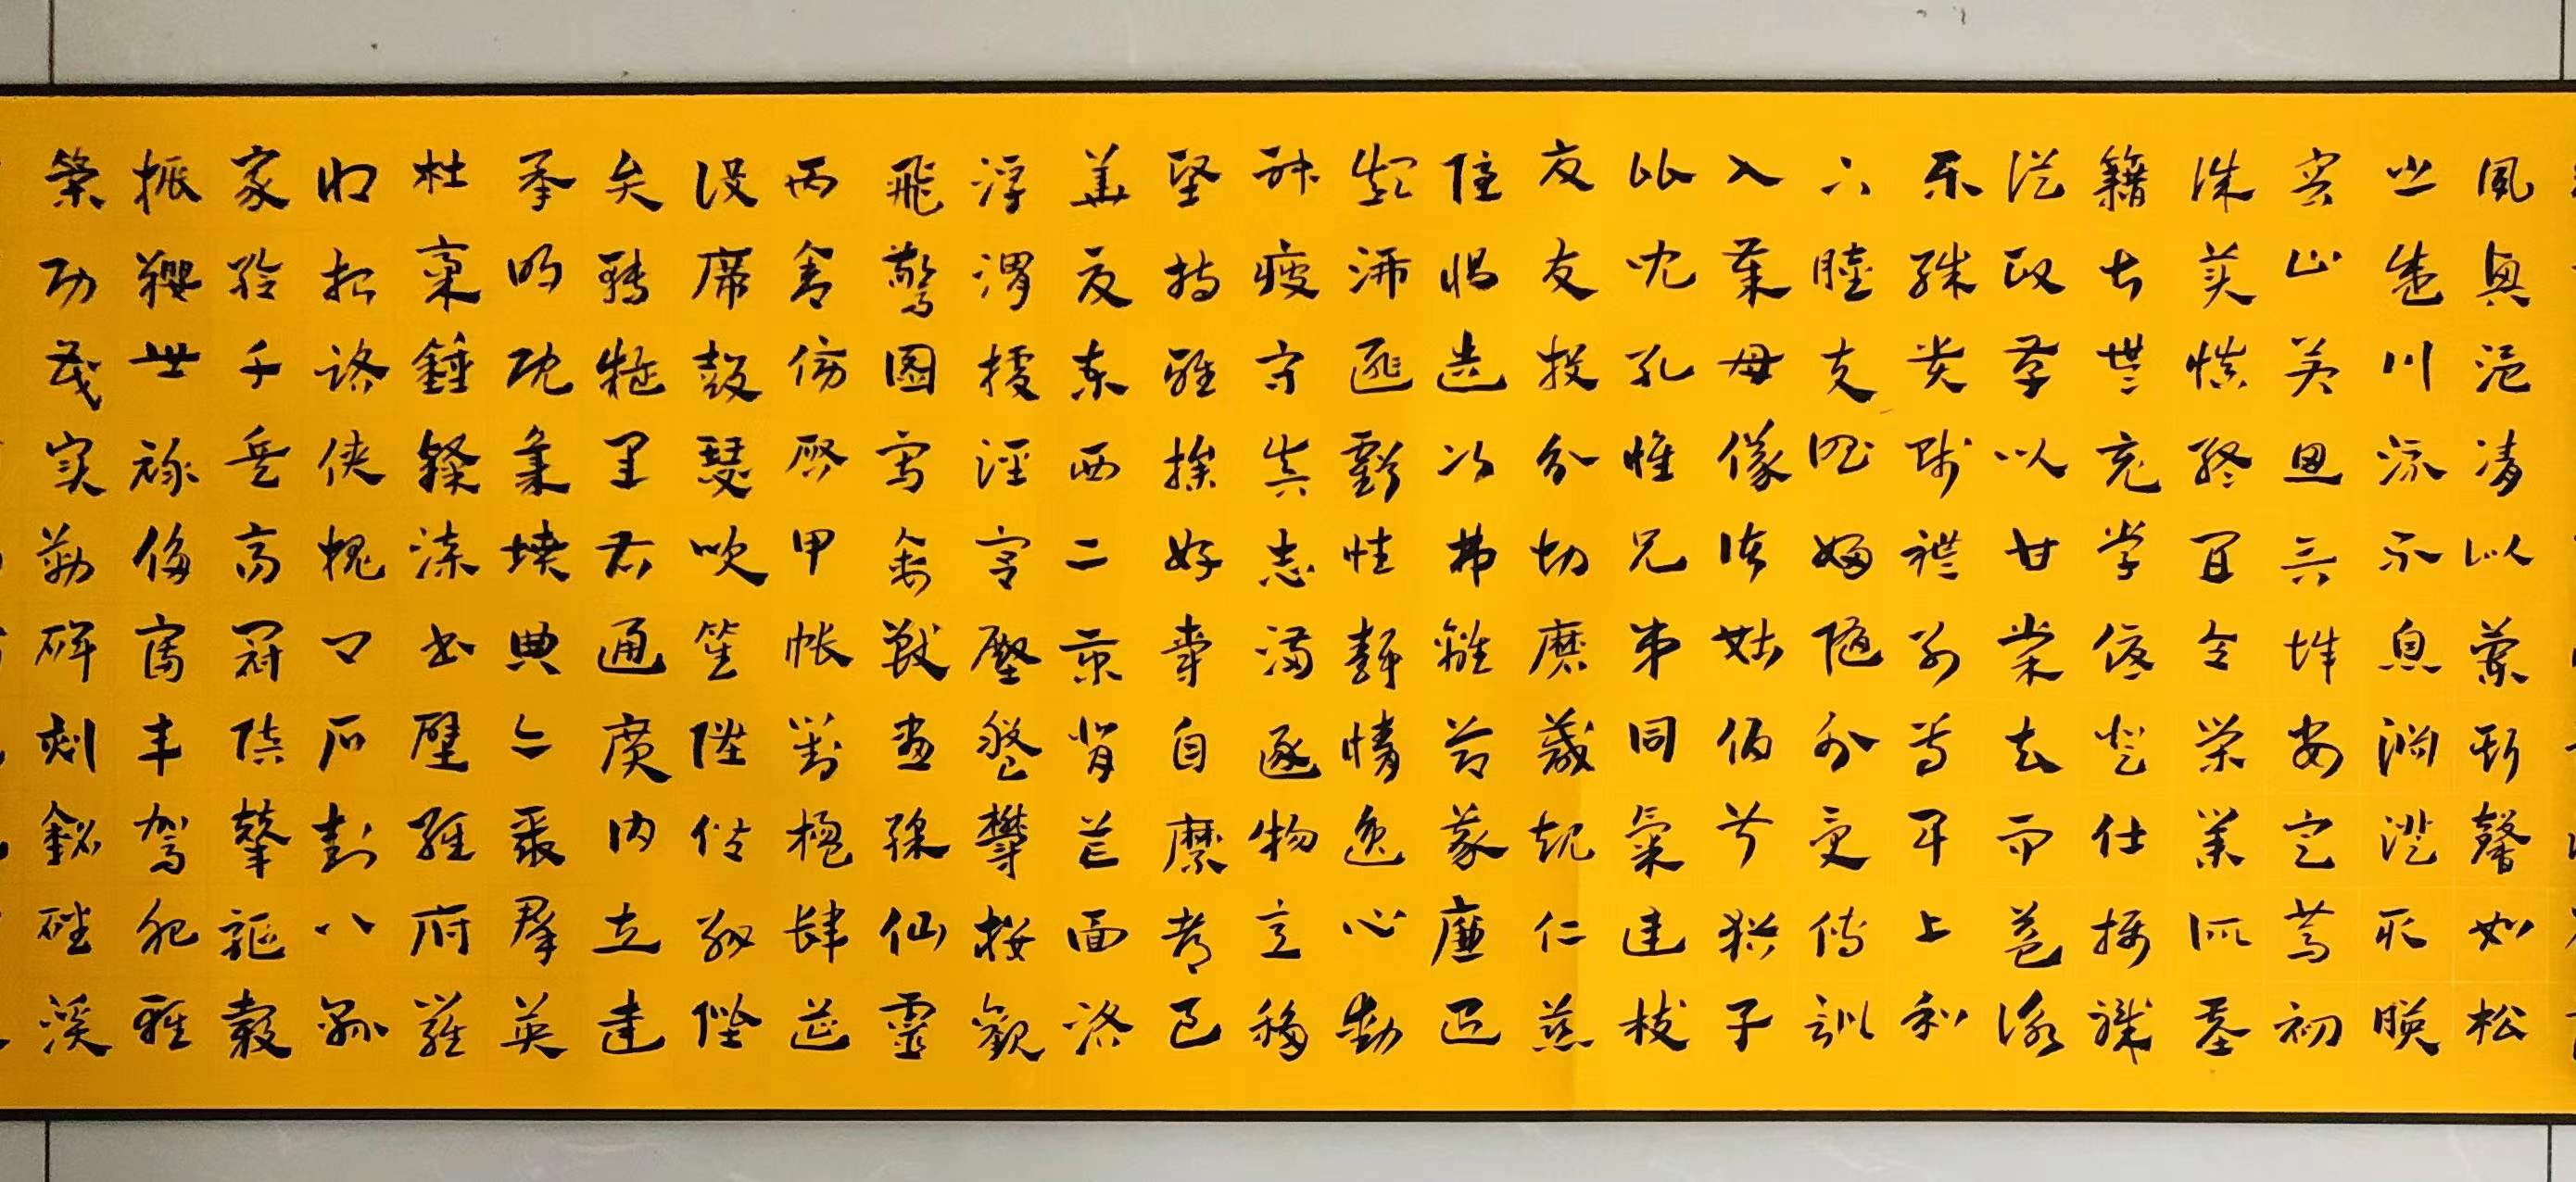 夙興温凊似蘭斯馨如松
之盛川流不息淵澄取映
容止若思言辭安定篤初
誠美慎終宜令榮業所基
籍甚無竟學優登仕攝職
從政存以甘棠去而益詠
樂殊貴賤禮別尊卑上和
下睦夫唱婦隨外受傅訓
入奉母儀諸姑伯叔猶子
比兒孔懷兄弟同氣連枝
交友投分切磨箴規仁慈
隱惻造次弗離節義廉退
顛沛匪虧性靜情逸心動
神疲守真志滿逐物意移
堅持雅操好爵自縻都邑
華夏東西二京背芒面洛
浮渭據涇宮殿盤鬱樓觀
飛驚圖寫禽獸畫綵仙靈
丙舍傍啟甲帳對楹肆筵
設席鼓瑟吹笙陞階納陛
弁轉疑星右通廣內左達
承明既集墳典亦聚群英
杜稾鍾隸漆書壁經府羅
將相路俠槐卿戶封八縣
家給千兵高冠陪輦驅轂
振纓世祿侈富車駕肥輕
策功茂實勒碑刻銘磻溪